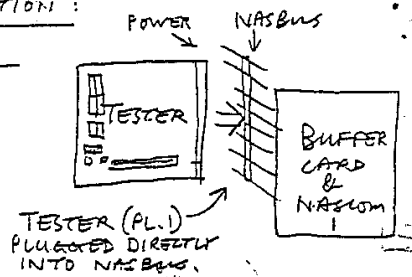 TION :
POWER
NASBUS
TESTER
BUFFER
CARD
&
NASCOM
1
TESTER (PL.1)
PLUGGED DIRECTLY
INTO NASBUS.